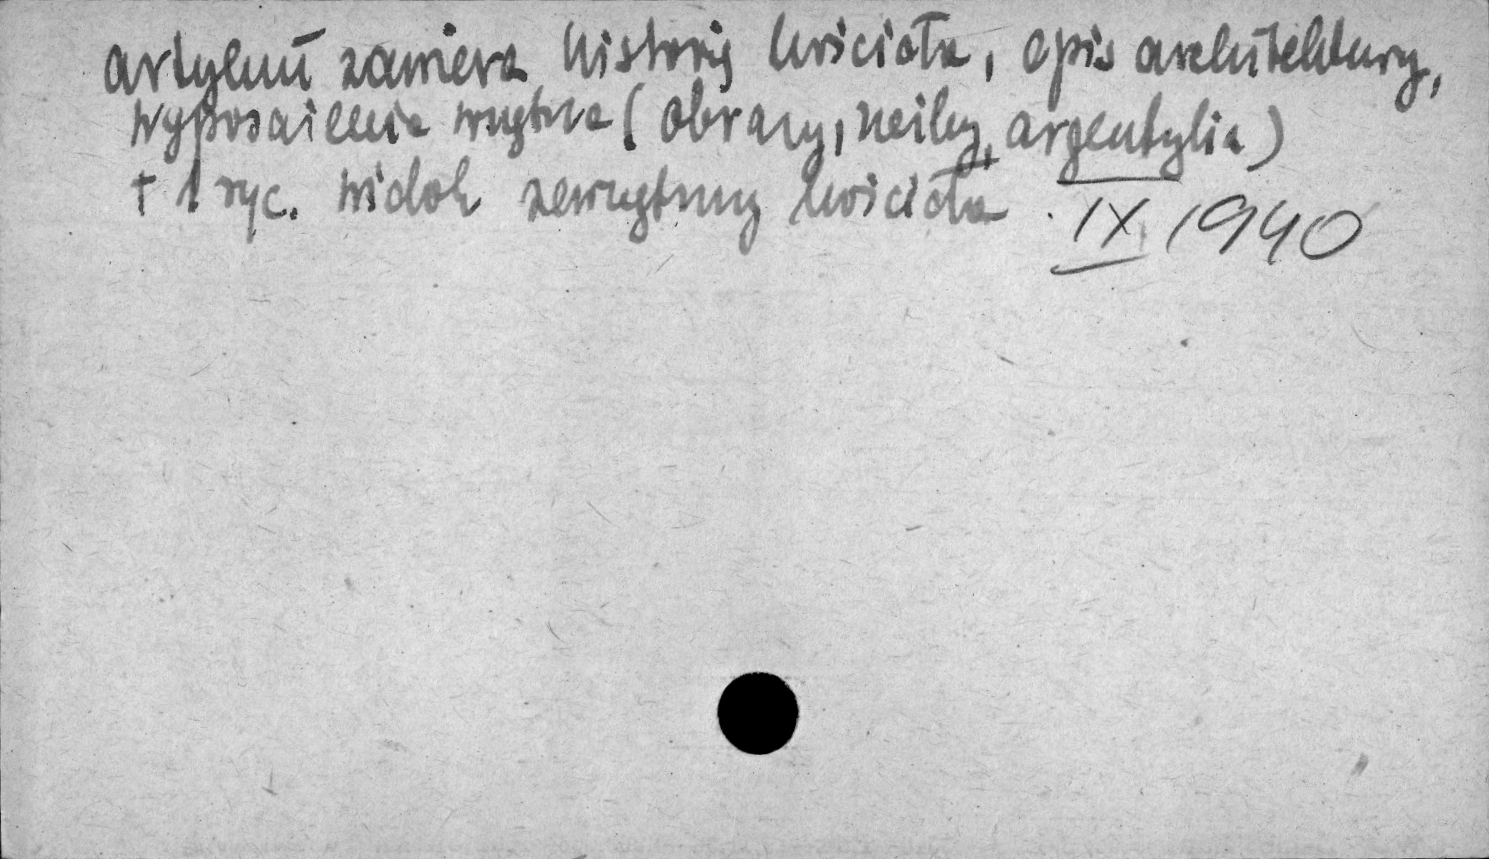 artykuł zawiera historię kościoła, opis architektury,
wyposażenia wnętrza (obrazy, rzeźby, argentylia)
+ 1 ryc. widok zewnętrzny kościoła
IX 1940